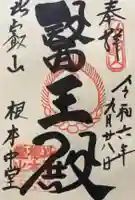 奉拝
令和六年
九月廿八日
醫王殿
比叡山
根本中堂